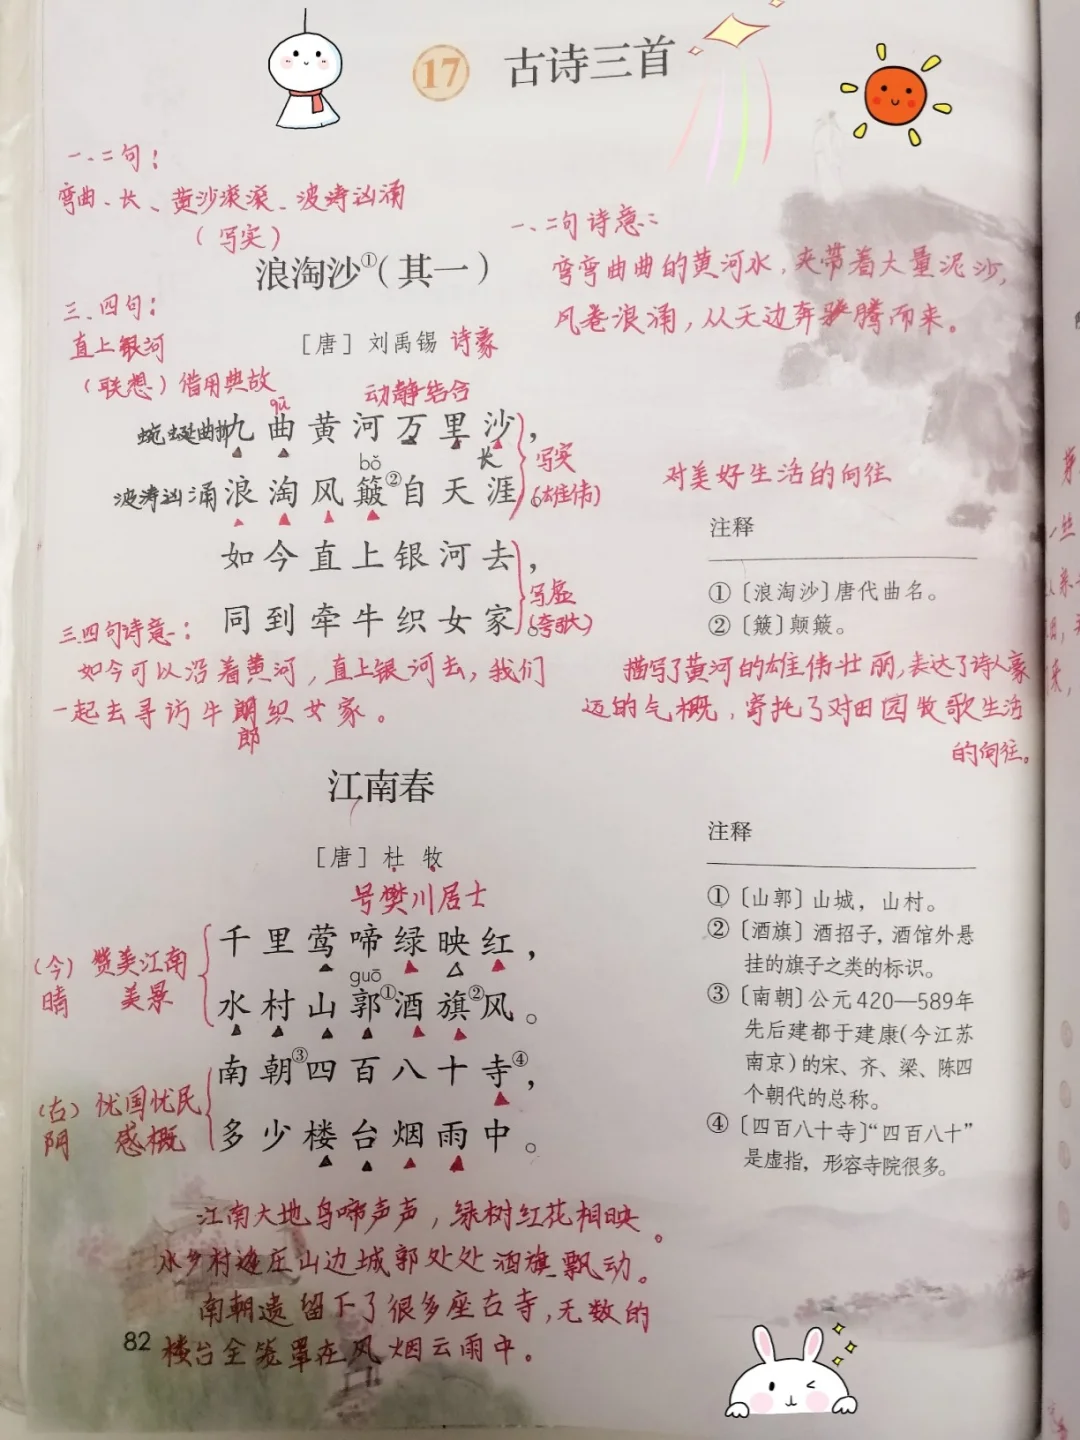 17 古诗三首
一、二句：
弯曲、长、黄沙滚滚、波涛汹涌
（写实）
一、二句诗意：
弯弯曲曲的黄河水，夹带着大量泥沙，
风卷浪涌，从天边奔腾而来。
浪淘沙①（其一）
三、四句：
直上银河
（联想）借用典故
［唐］刘禹锡 诗豪
动静结合
qū
蜿蜒曲折 九曲黄河万里沙，
bǒ 长
波涛汹涌 浪淘风簸②自天涯。
写实
（雄伟）
如今直上银河去，
同到牵牛织女家。
写虚
（夸张）
对美好生活的向往
注释
①〔浪淘沙〕唐代曲名。
②〔簸〕颠簸。
三四句诗意：
如今可以沿着黄河，直上银河去，我们
一起去寻访牛郎织女家。
描写了黄河的雄伟壮丽，表达了诗人豪
迈的气概，寄托了对田园牧歌生活
的向往。
江南春
［唐］杜 牧
号樊川居士
（今） 赞美江南
晴 美景
千里莺啼绿映红，
guō
水村山郭①酒旗②风。
（古） 忧国忧民
阴 感概
南朝③四百八十寺④，
多少楼台烟雨中。
注释
①〔山郭〕山城，山村。
②〔酒旗〕酒招子，酒馆外悬
挂的旗子之类的标识。
③〔南朝〕公元420—589年
先后建都于建康（今江苏
南京）的宋、齐、梁、陈四
个朝代的总称。
④〔四百八十寺〕“四百八十”
是虚指，形容寺院很多。
江南大地鸟啼声声，绿树红花相映。
水乡村边庄山边城郭处处酒旗飘动。
南朝遗留下了很多座古寺，无数的
楼台全笼罩在风烟云雨中。
82